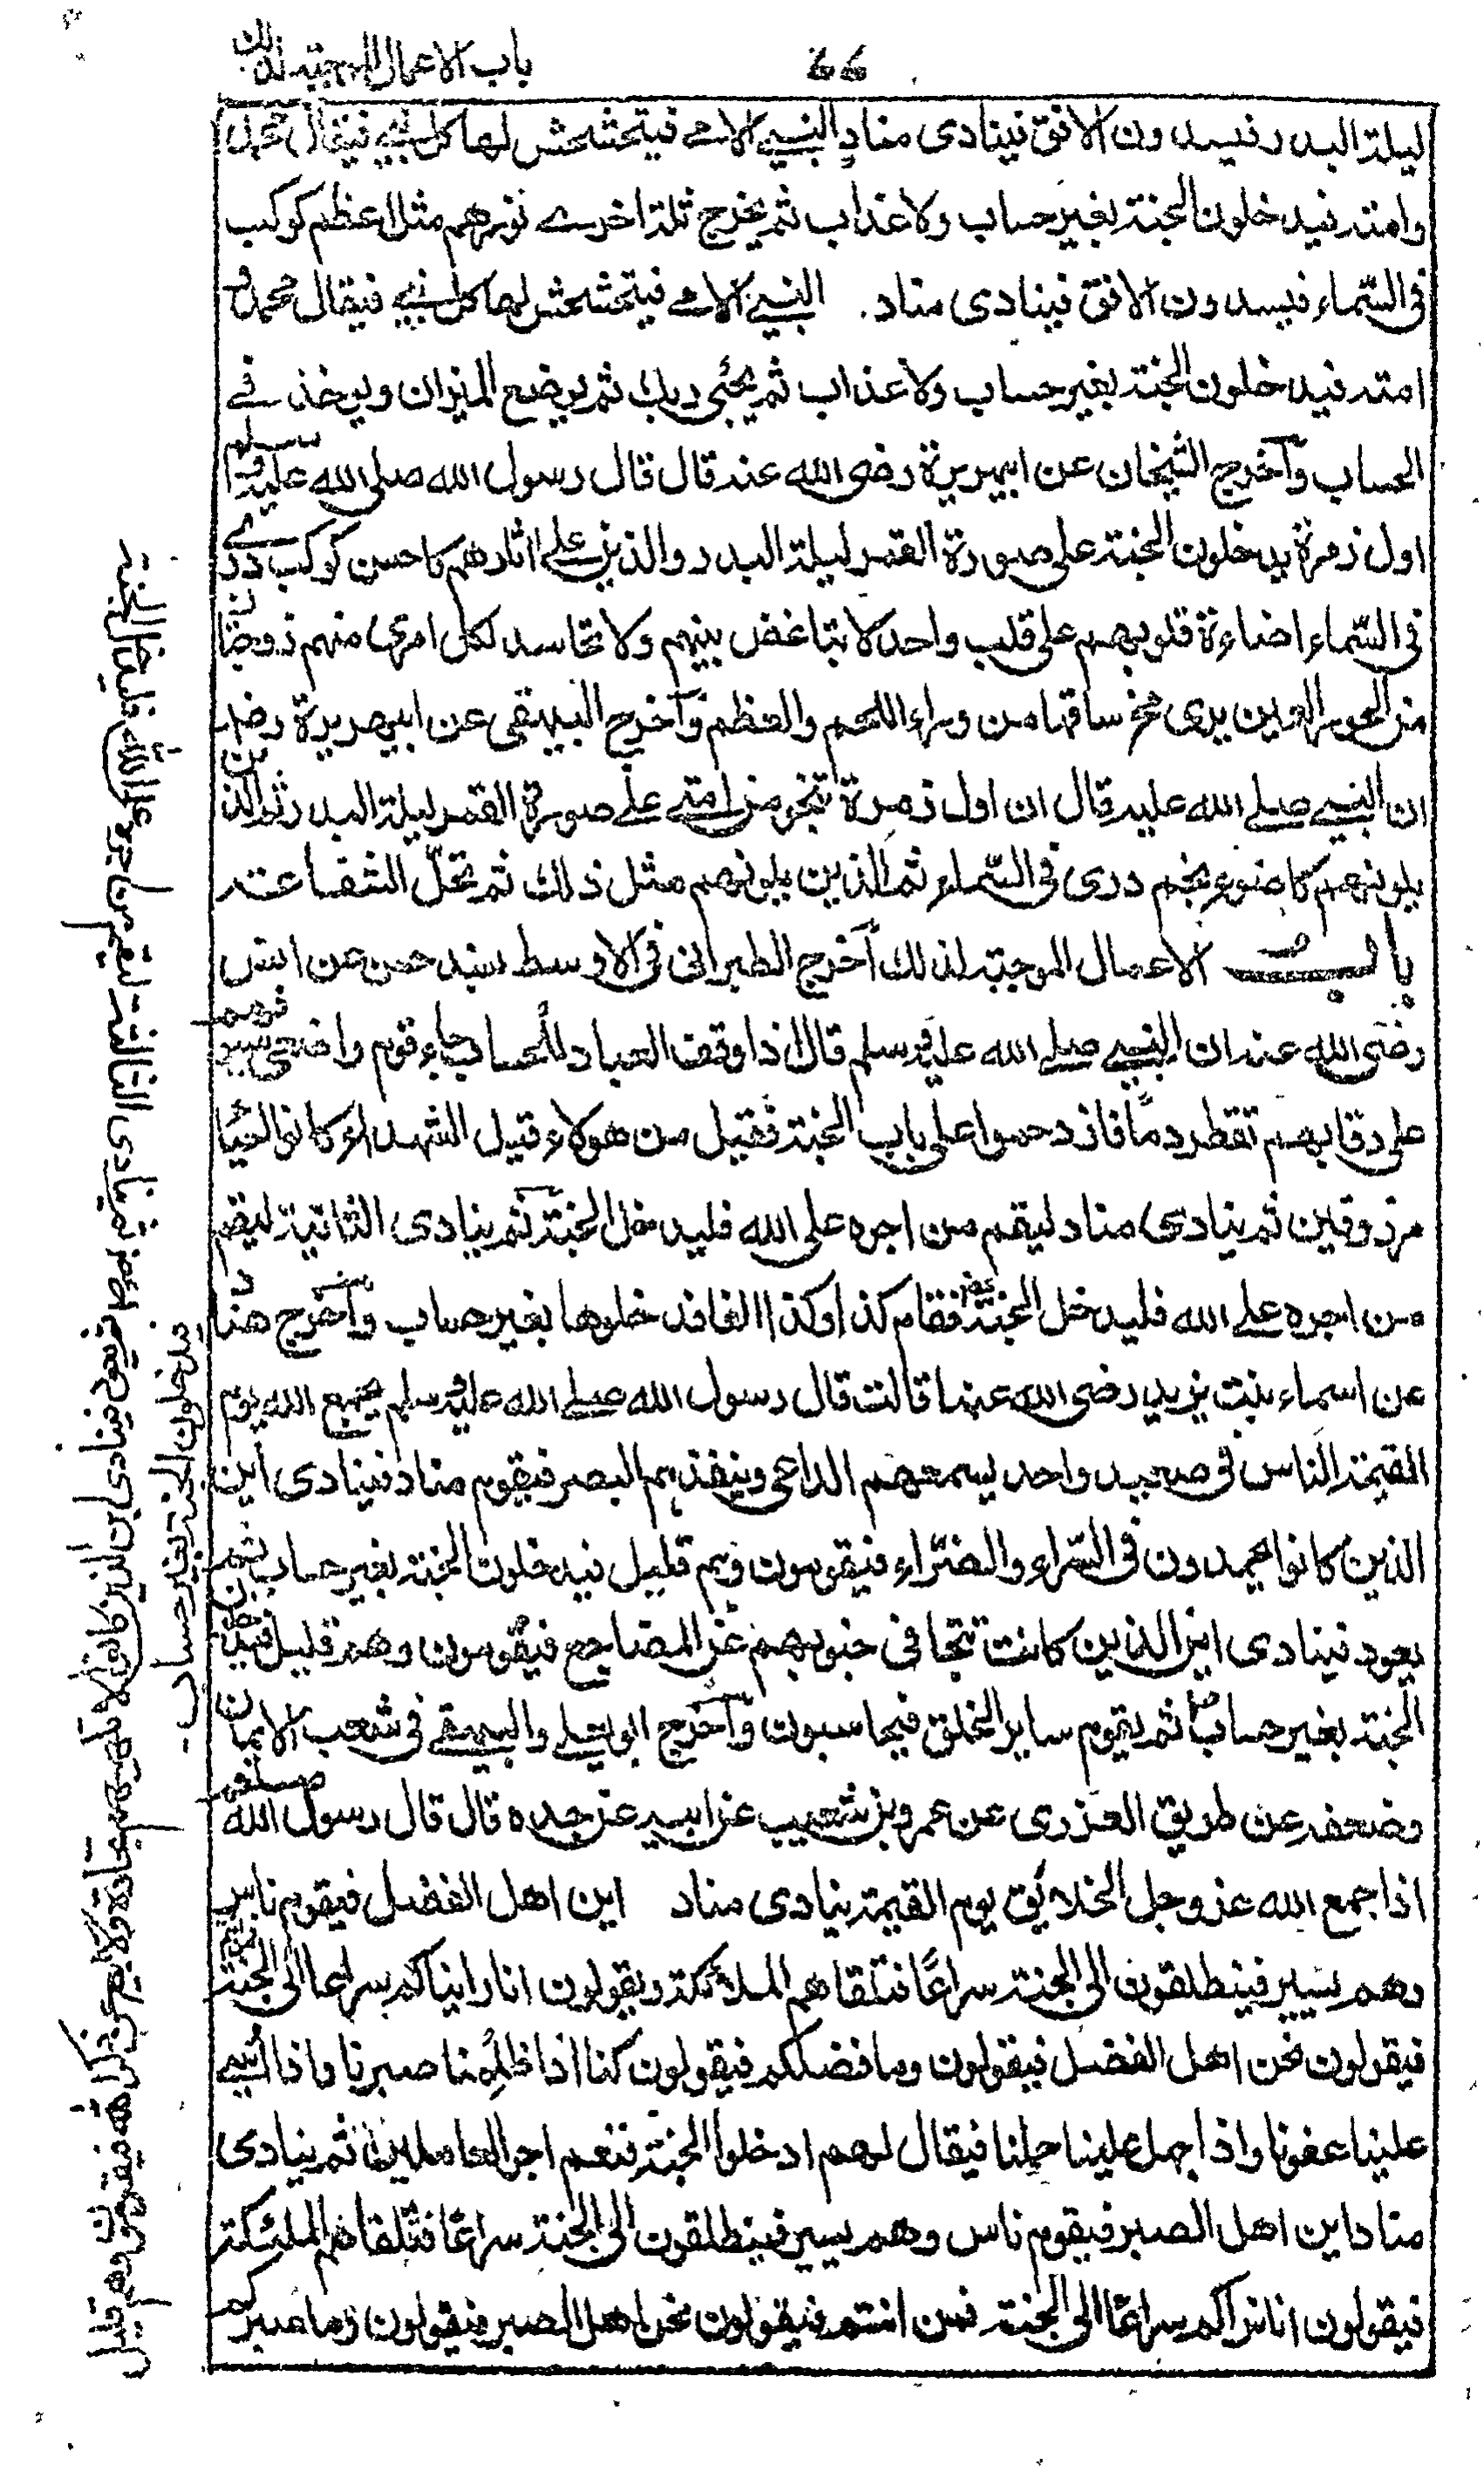 باب الاعمال الموجبة لذلك
٢٦
ليلة البدر فيسدون الافق فينادى مناد النبى الامى فيتحشحش لها كل نبى فيقال محمد
وامته فيدخلون الجنة بغير حساب ولا عذاب ثم يخرج ثلة اخرى نورهم مثل اعظم كوكب
فى السّماء فيسدون الافق فينادى مناد النبى الامى فيتحشحش لها كل نبى فيقال محمد و
امته فيدخلون الجنة بغير حساب ولا عذاب ثم يجئى ربك ثم يوضع الميزان ويوخذ فى
الحساب وآخرج الشيخان عن ابيهريرة رضى الله عنه قال قال رسول الله صلى الله عليه وسلم
اول زمرة يدخلون الجنة على صورة القمر ليلة البدر والذين على اثارهم كاحسن كوكب درى
فى السّماء اضاءة قلوبهم على قلب واحد لا تباغض بينهم ولا تحاسد لكل امرى منهم زوجتان
من الحور العين يرى مخ ساقهما من وراء اللحم والعظم وآخرج البيهقى عن ابيهريرة رضـ
ان النبى صلى الله عليه قال ان اول زمرة تنجو من امتى على صورة القمر ليلة البدر ثم الذين
يلونهم كاضوء نجم درى فى السّماء ثم الذين يلونهم مثل ذلك ثم تحلّ الشفاعة
باب الاعمال الموجبة لذلك آخرج الطبرانى فى الاوسط بسند حسن عن انس
رضى الله عنه ان النبى صلى الله عليه وسلم قال اذا وقف العباد للحساب جاء قوم واضعى سيوفهم
على رقابهم تقطر دمًا فازدحموا على باب الجنة فقيل من هولاء قيل الشهداء كانوا احيًا
مرزوقين ثم ينادى مناد ليقم من اجره على الله فليدخل الجنة ثم ينادى الثانية ليقم
من اجره على الله فليدخل الجنة فقام كذا وكذا الفا فدخلوها بغير حساب وآخرج هنّاد
عن اسماء بنت يزيد رضى الله عنها قالت قال رسول الله صلى الله عليه وسلم يجمع الله يوم
القيمة الناس فى صعيد واحد يسمعهم الداعى وينفذهم البصر فيقوم مناد فينادى اين
الذين كانوا يحمدون فى السّراء والضرّاء فيقومون وهم قليل فيدخلون الجنة بغير حساب ثم
يعود فينادى اين الذين كانت تتجافى جنوبهم عن المضاجع فيقومون وهم قليل فيدخلون
الجنة بغير حساب ثم يقوم ساير الخلق فيحاسبون وآخرج ابو يعلى والبيهقى فى شعب الايمان
وضعفه عن طريق العزرى عن عمرو بن شعيب عن ابيه عن جده قال قال رسول الله صلعم
اذا جمع الله عز وجل الخلايق يوم القيمة ينادى مناد اين اهل الفضل فيقوم ناس
وهم يسير فينطلقون الى الجنة سراعًا فتلقاهم الملائكة ويقولون انا رايناكم سراعا الى الجنة
فيقولون نحن اهل الفضل فيقولون وما فضلكم فيقولون كنا اذا ظلمنا صبرنا واذا اسى
علينا عفونا واذا جهل علينا حلمنا فيقال لهم ادخلوا الجنة فنعم اجر العاملين ثم ينادى
مناد اين اهل الصبر فيقوم ناس وهم يسير فينطلقون الى الجنة سراعًا فتلقاهم الملئكة
فيقولون انا نراكم سراعًا الى الجنة فمن انتم فيقولون نحن اهل الصبر فيقولون وما صبركم
فليدخل الجنة
ثم ينادى الثالثة ليقم من اجره على الله
ثم يعود فينادى اين الذين كانوا لا تلهيهم تجارة ولا بيع عن ذكر الله فيقومون وهم قليل
فيدخلون الجنة بغير حساب